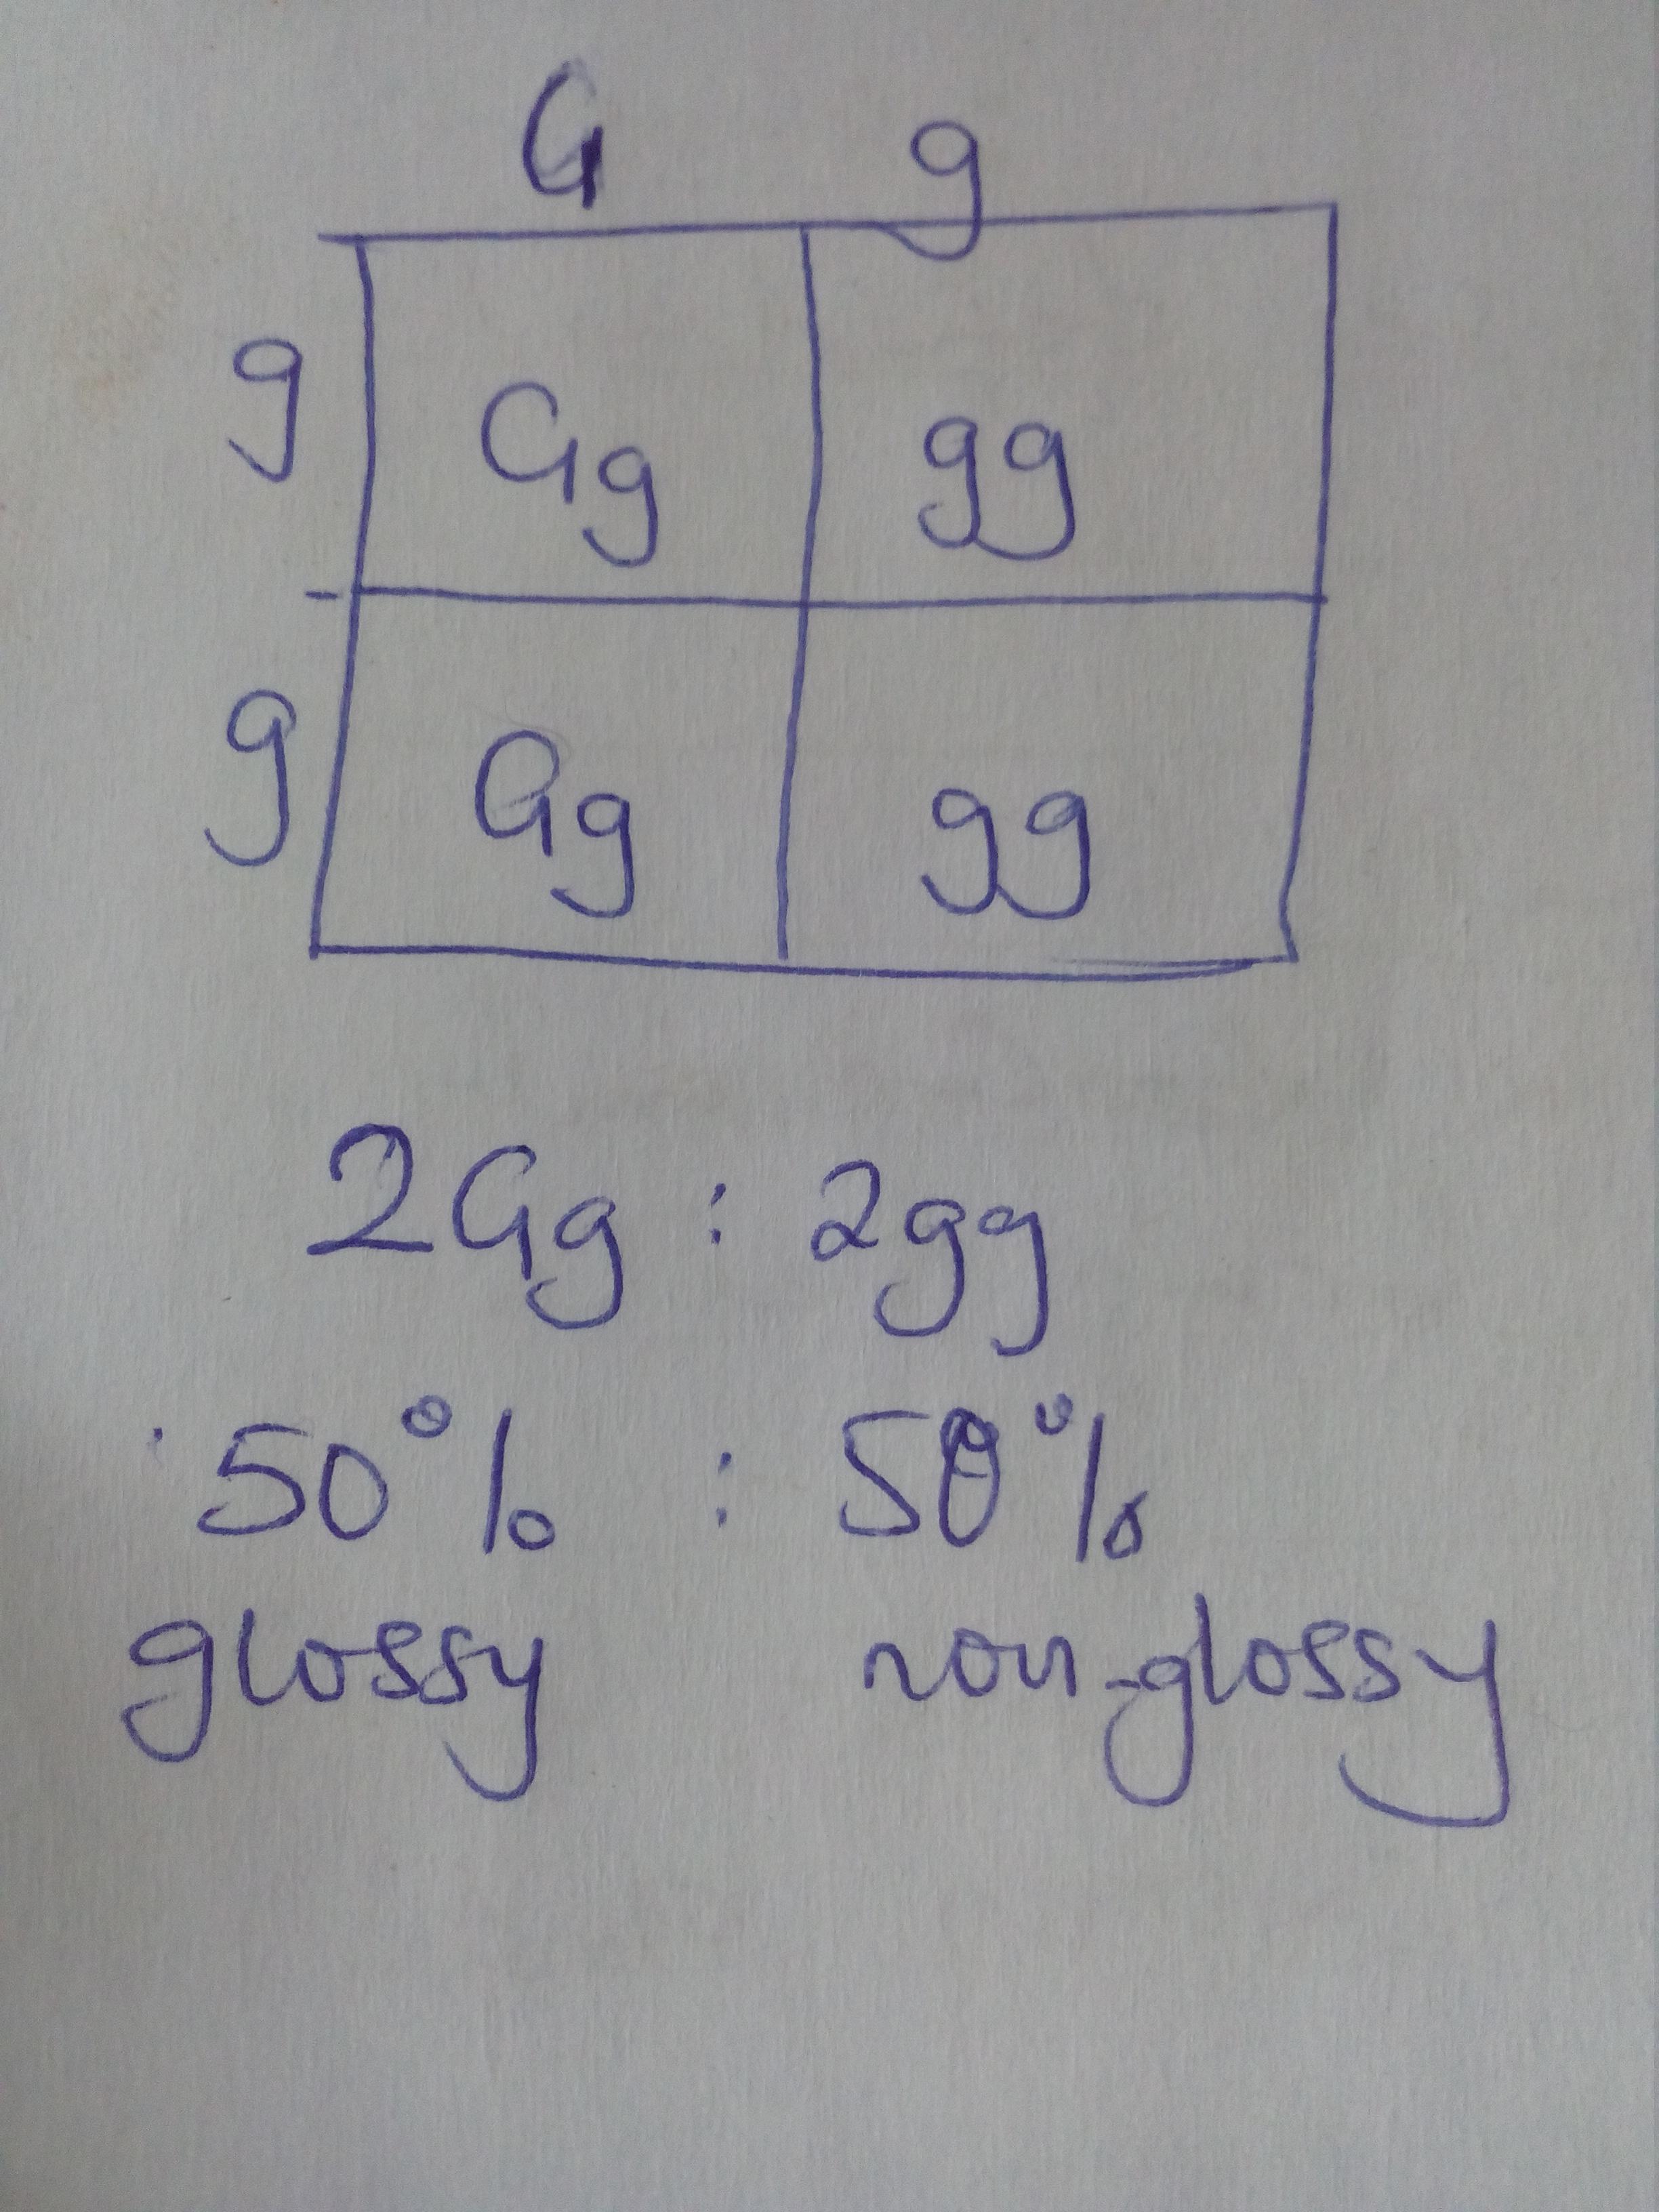 G g
g Gg gg
g Gg gg
2Gg : 2gg
50% : 50%
glossy non-glossy